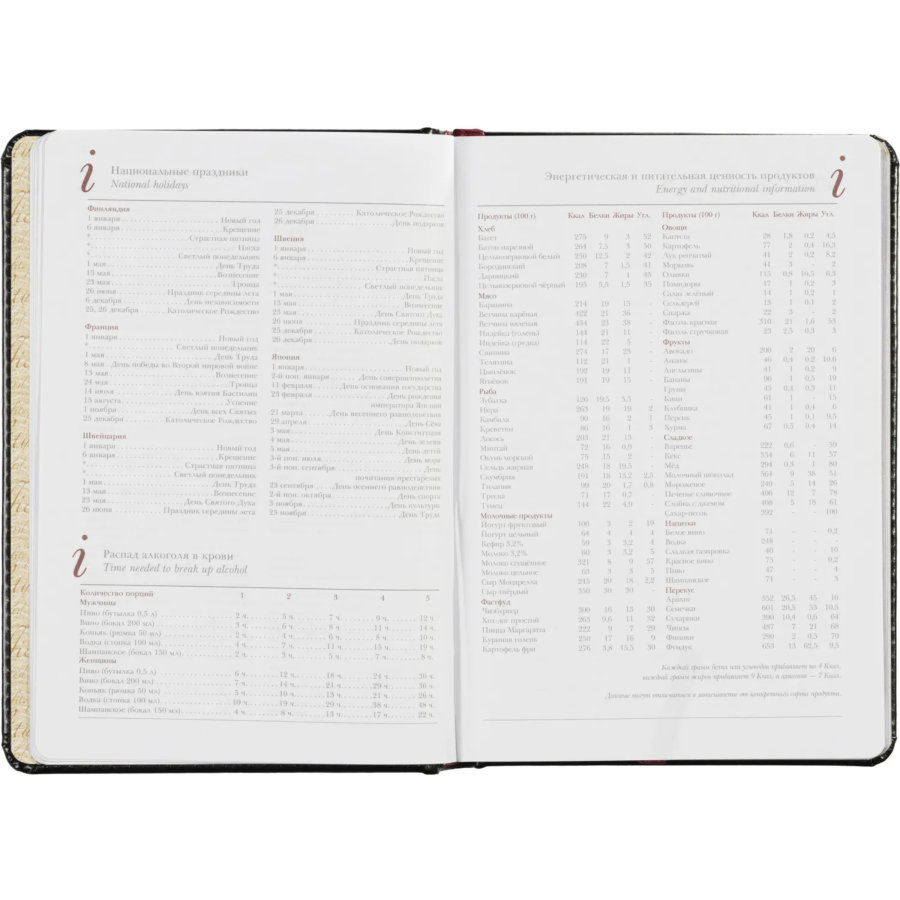 i
Национальные праздники
National holidays
Финляндия
1 января Новый год
6 января Крещение
* Страстная пятница
* Пасха
* Светлый понедельник
1 мая День Труда
13 мая Вознесение
23 мая Троица
26 июня Праздник середины лета
6 декабря День независимости
25, 26 декабря Католическое Рождество
Франция
1 января Новый год
* Светлый понедельник
1 мая День Труда
8 мая День победы во Второй мировой войне
13 мая Вознесение
24 мая Троица
14 июля День взятия Бастилии
15 августа Успение
1 ноября День всех Святых
25 декабря Католическое Рождество
Швейцария
1 января Новый год
6 января Крещение
* Страстная пятница
* Светлый понедельник
1 мая День Труда
13 мая Вознесение
23 мая День Святого Духа
26 июня Праздник середины лета
25 декабря Католическое Рождество
26 декабря День подарков
Швеция
1 января Новый год
6 января Крещение
* Страстная пятница
* Пасха
* Светлый понедельник
1 мая День Труда
13 мая Вознесение
23 мая День Святого Духа
26 июня Праздник середины лета
25 декабря Католическое Рождество
26 декабря День подарков
Япония
1 января Новый год
2-й пон. января День совершеннолетия
11 февраля День основания государства
23 февраля День рождения
императора Японии
21 марта День весеннего равноденствия
29 апреля День Сёва
3 мая День Конституции
4 мая День зелени
5 мая День детей
3-й пон. июля День моря
3-й пон. сентября День
почитания престарелых
23 сентября День осеннего равноденствия
2-й пон. октября День спорта
3 ноября День культуры
23 ноября День Труда
i
Распад алкоголя в крови
Time needed to break up alcohol
Количество порций 1 2 3 4 5
Мужчины
Пиво (бутылка 0,5 л) 2 ч. 5 ч. 7 ч. 9 ч. 12 ч.
Вино (бокал 200 мл) 3 ч. 6 ч. 8 ч. 11 ч. 14 ч.
Коньяк (рюмка 50 мл) 2 ч. 4 ч. 6 ч. 8 ч. 10 ч.
Водка (стопка 100 мл) 4 ч. 7 ч. 11 ч. 15 ч. 19 ч.
Шампанское (бокал 150 мл) 2 ч. 3 ч. 5 ч. 7 ч. 8 ч.
Женщины
Пиво (бутылка 0,5 л) 6 ч. 12 ч. 18 ч. 24 ч. 30 ч.
Вино (бокал 200 мл) 7 ч. 14 ч. 21 ч. 29 ч. 36 ч.
Коньяк (рюмка 50 мл) 5 ч. 10 ч. 15 ч. 21 ч. 26 ч.
Водка (стопка 100 мл) 10 ч. 19 ч. 29 ч. 38 ч. 48 ч.
Шампанское (бокал 150 мл) 4 ч. 8 ч. 13 ч. 17 ч. 22 ч.
Энергетическая и питательная ценность продуктов
Energy and nutritional information
i
Продукты (100 г) Ккал Белки Жиры Угл.
Хлеб
Багет 275 9 3 52
Батон нарезной 264 7,5 3 50
Цельнозерновой белый 250 12,5 2 42
Бородинский 208 7 1,5 41
Дарницкий 230 7 1 45
Цельнозерновой чёрный 195 5,5 1,5 35
Мясо
Баранина 214 19 15 -
Ветчина варёная 422 21 36 -
Ветчина вяленая 454 23 38 -
Индейка (голень) 144 21 11 -
Индейка (грудка) 114 22 5 -
Свинина 274 17 23 -
Телятина 112 21 1 -
Цыплёнок 192 19 11 -
Ягнёнок 191 19 15 -
Рыба
Зубатка 126 19,5 5,5 -
Икра 263 19 19 2
Камбала 90 16 2 1
Креветки 86 16 1 3
Лосось 203 21 13 -
Минтай 72 16 0,9 -
Окунь морской 75 15 2 -
Сельдь жирная 248 18 19,5 -
Скумбрия 191 18 13,2 2,5
Тилапия 99 20 1,7 0,8
Треска 71 17 0,7 -
Тунец 144 22 4,9 -
Молочные продукты
Йогурт фруктовый 100 3 2 19
Йогурт цельный 64 4 4 4
Кефир 3,2% 59 3 3,2 4
Молоко 3,2% 60 3 3,2 5
Молоко сгущённое 321 8 9 57
Молоко цельное 63 3 3 5
Сыр Моцарелла 245 20 18 2,2
Сыр твёрдый 350 30 30 -
Фастфуд
Чизбургер 300 16 13 30
Хот-дог простой 263 9,6 11 32
Пицца Маргарита 222 9 7 29
Куриная голень 250 17 16 9
Картофель фри 276 3,8 15,5 30
Продукты (100 г) Ккал Белки Жиры Угл.
Овощи
Капуста 28 1,8 0,2 4,5
Картофель 77 2 0,4 16,3
Лук репчатый 41 2 0,2 8,2
Морковь 41 3 - 2
Оливки 115 0,8 10,5 6,3
Помидоры 17 1 0,2 3
Салат зелёный 14 1 0,2 1
Сельдерей 13 1 0,1 2
Спаржа 22 3 - 2
Фасоль красная 310 21 1,6 53
Фасоль стручковая 23 2,5 0,3 3
Фрукты
Авокадо 200 2 20 6
Ананас 46 0,4 0,2 10,6
Апельсины 41 1 0,2 9
Бананы 90 1 0,5 19
Груши 45 0,4 0,3 11
Киви 61 1 - 15
Клубника 41 1 0,4 6
Персик 45 1 0,1 9,5
Хурма 67 0,5 0,4 14
Сладкое
Варенье 222 0,6 - 50
Кекс 334 6 11 57
Мёд 294 0,3 1 80
Молочный шоколад 564 9 38 51
Мороженое 240 5 14 26
Печенье сливочное 406 12 7 78
Слойка с джемом 408 5 18 61
Сахар-песок 392 - - 100
Напитки
Белое вино 74 - - 0,2
Водка 248 - - -
Сладкая газировка 40 - - 10
Красное вино 75 - - 0,2
Пиво 47 - - 4
Шампанское 71 - - 3
Перекус
Арахис 552 26,5 45 10
Семечки 601 20,5 53 10,5
Сухарики 390 10,4 0,6 64
Чипсы 487 7 21 68
Финики 290 2 0,5 70
Фундук 653 13 62,5 9,5
Каждый грамм белка или углевода прибавляет по 4 Ккал,
каждый грамм жиров прибавляет 9 Ккал, а алкоголя — 7 Ккал.
Данные могут отличаться в зависимости от конкретного сорта продукта.